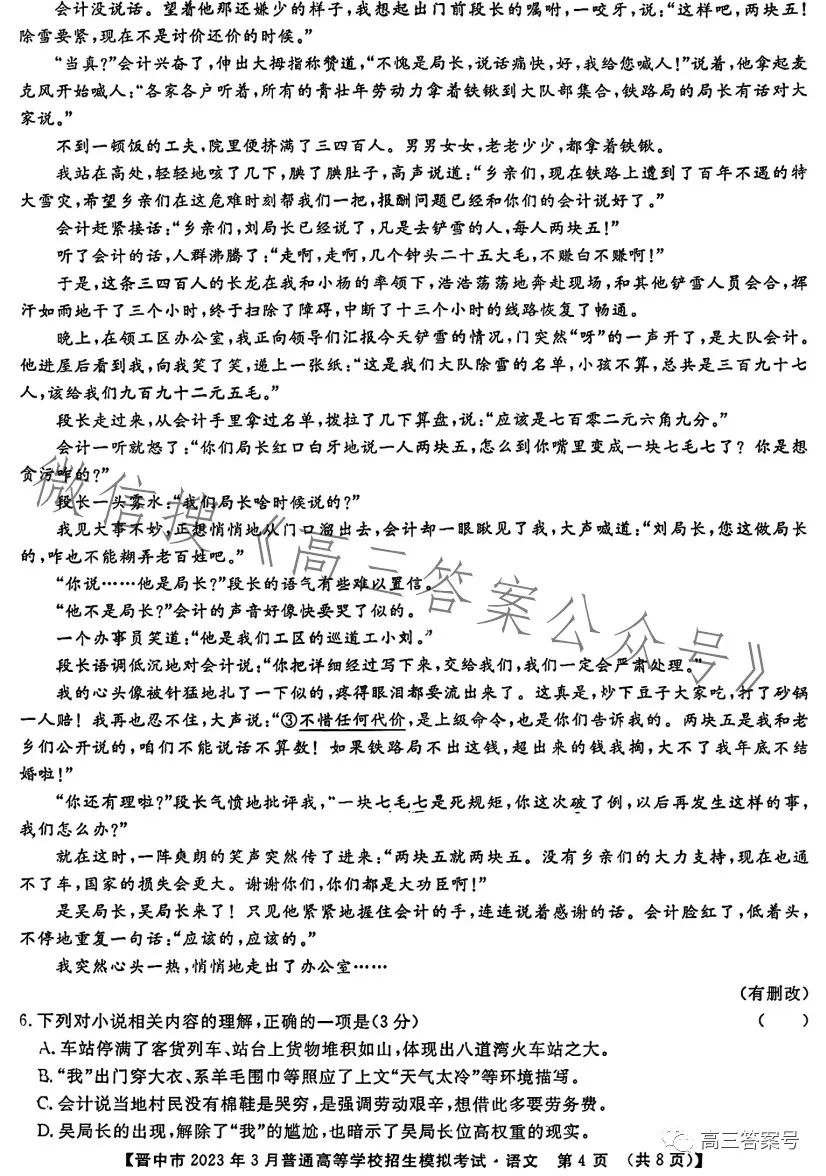 会计没说话。望着他那还嫌少的样子,我想起出门前段长的嘱咐,一咬牙,说:“这样吧,两块五!
除雪要紧,现在不是讨价还价的时候。”
“当真?”会计兴奋了,伸出大拇指称赞道,“不愧是局长,说话痛快,好,我给您喊人!”说着,他拿起麦
克风开始喊人:“各家各户听着,所有的青壮年劳动力拿着铁锹到大队部集合,铁路局的局长有话对大
家说。”
不到一顿饭的工夫,院里便挤满了三四百人。男男女女,老老少少,都拿着铁锹。
我站在高处,轻轻地咳了几下,腆了腆肚子,高声说道:“乡亲们,现在铁路上遭到了百年不遇的特
大雪灾,希望乡亲们在这危难时刻帮我们一把,报酬问题已经和你们的会计说好了。”
会计赶紧接话:“乡亲们,刘局长已经说了,凡是去铲雪的人,每人两块五!”
听了会计的话,人群沸腾了:“走啊,走啊,几个钟头二十五大毛,不赚白不赚啊!”
于是,这条三四百人的长龙在我和小杨的率领下,浩浩荡荡地奔赴现场,和其他铲雪人员会合,挥
汗如雨地干了三个小时,终于扫除了障碍,中断了十三个小时的线路恢复了畅通。
晚上,在领工区办公室,我正向领导们汇报今天铲雪的情况,门突然“呀”的一声开了,是大队会计。
他进屋后看到我,向我笑了笑,递上一张纸:“这是我们大队除雪的名单,小孩不算,总共是三百九十七
人,该给我们九百九十二元五毛。”
段长走过来,从会计手里拿过名单,拨拉了几下算盘,说:“应该是七百零二元六角九分。”
会计一听就怒了:“你们局长红口白牙地说一人两块五,怎么到你嘴里变成一块七毛七了?你是想
贪污咋的?”
段长一头雾水:“我们局长啥时候说的?”
我见大事不妙,正想悄悄地从门口溜出去,会计却一眼瞅见了我,大声喊道:“刘局长,您这做局长
的,咋也不能糊弄老百姓吧。”
“你说……他是局长?”段长的语气有些难以置信。
“他不是局长?”会计的声音好像快要哭了似的。
一个办事员笑道:“他是我们工区的巡道工小刘。”
段长语调低沉地对会计说:“你把详细经过写下来,交给我们,我们一定会严肃处理。”
我的心头像被针猛地扎了一下似的,疼得眼泪都要流出来了。这真是,炒下豆子大家吃,打了砂锅
一人赔!我再也忍不住,大声说:“③不惜任何代价,是上级命令,也是你们告诉我的。两块五是我和老
乡们公开说的,咱们不能说话不算数!如果铁路局不出这钱,超出来的钱我掏,大不了我年底不结
婚啦!”
“你还有理啦?”段长气愤地批评我,“一块七毛七是死规矩,你这次破了例,以后再发生这样的事,
我们怎么办?”
就在这时,一阵爽朗的笑声突然传了进来:“两块五就两块五。没有乡亲们的大力支持,现在也通
不了车,国家的损失会更大。谢谢你们,你们都是大功臣啊!”
是吴局长,吴局长来了!只见他紧紧地握住会计的手,连连说着感谢的话。会计脸红了,低着头,
不停地重复一句话:“应该的,应该的。”
我突然心头一热,悄悄地走出了办公室……
(有删改)
6.下列对小说相关内容的理解,正确的一项是(3分) ( )
A.车站停满了客货列车、站台上货物堆积如山,体现出八道湾火车站之大。
B.“我”出门穿大衣、系羊毛围巾等照应了上文“天气太冷”等环境描写。
C.会计说当地村民没有棉鞋是哭穷,是强调劳动艰辛,想借此多要劳务费。
D.吴局长的出现,解除了“我”的尴尬,也暗示了吴局长位高权重的现实。
【晋中市2023年3月普通高等学校招生模拟考试·语文 第4页 (共8页)】
微信搜《高三答案公众号》
高三答案号